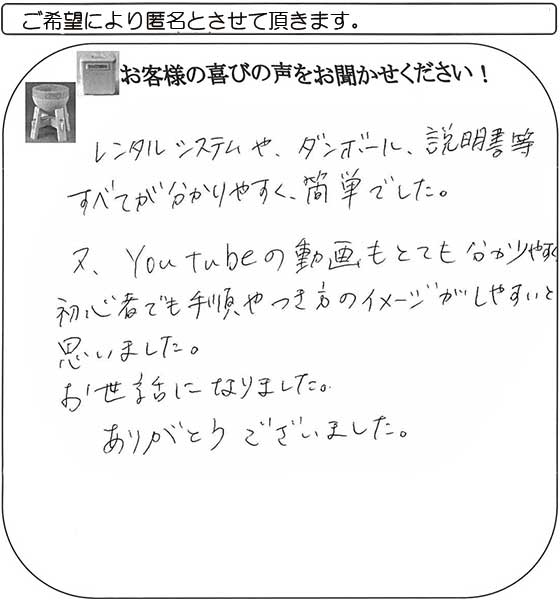 ご希望により匿名とさせて頂きます。
お客様の喜びの声をお聞かせください！
レンタルシステムや、ダンボール、説明書等
すべてが分かりやすく、簡単でした。
又、YouTubeの動画もとても分かりやすく
初心者でも手順やつき方のイメージがしやすいと
思いました。
お世話になりました。
ありがとうございました。